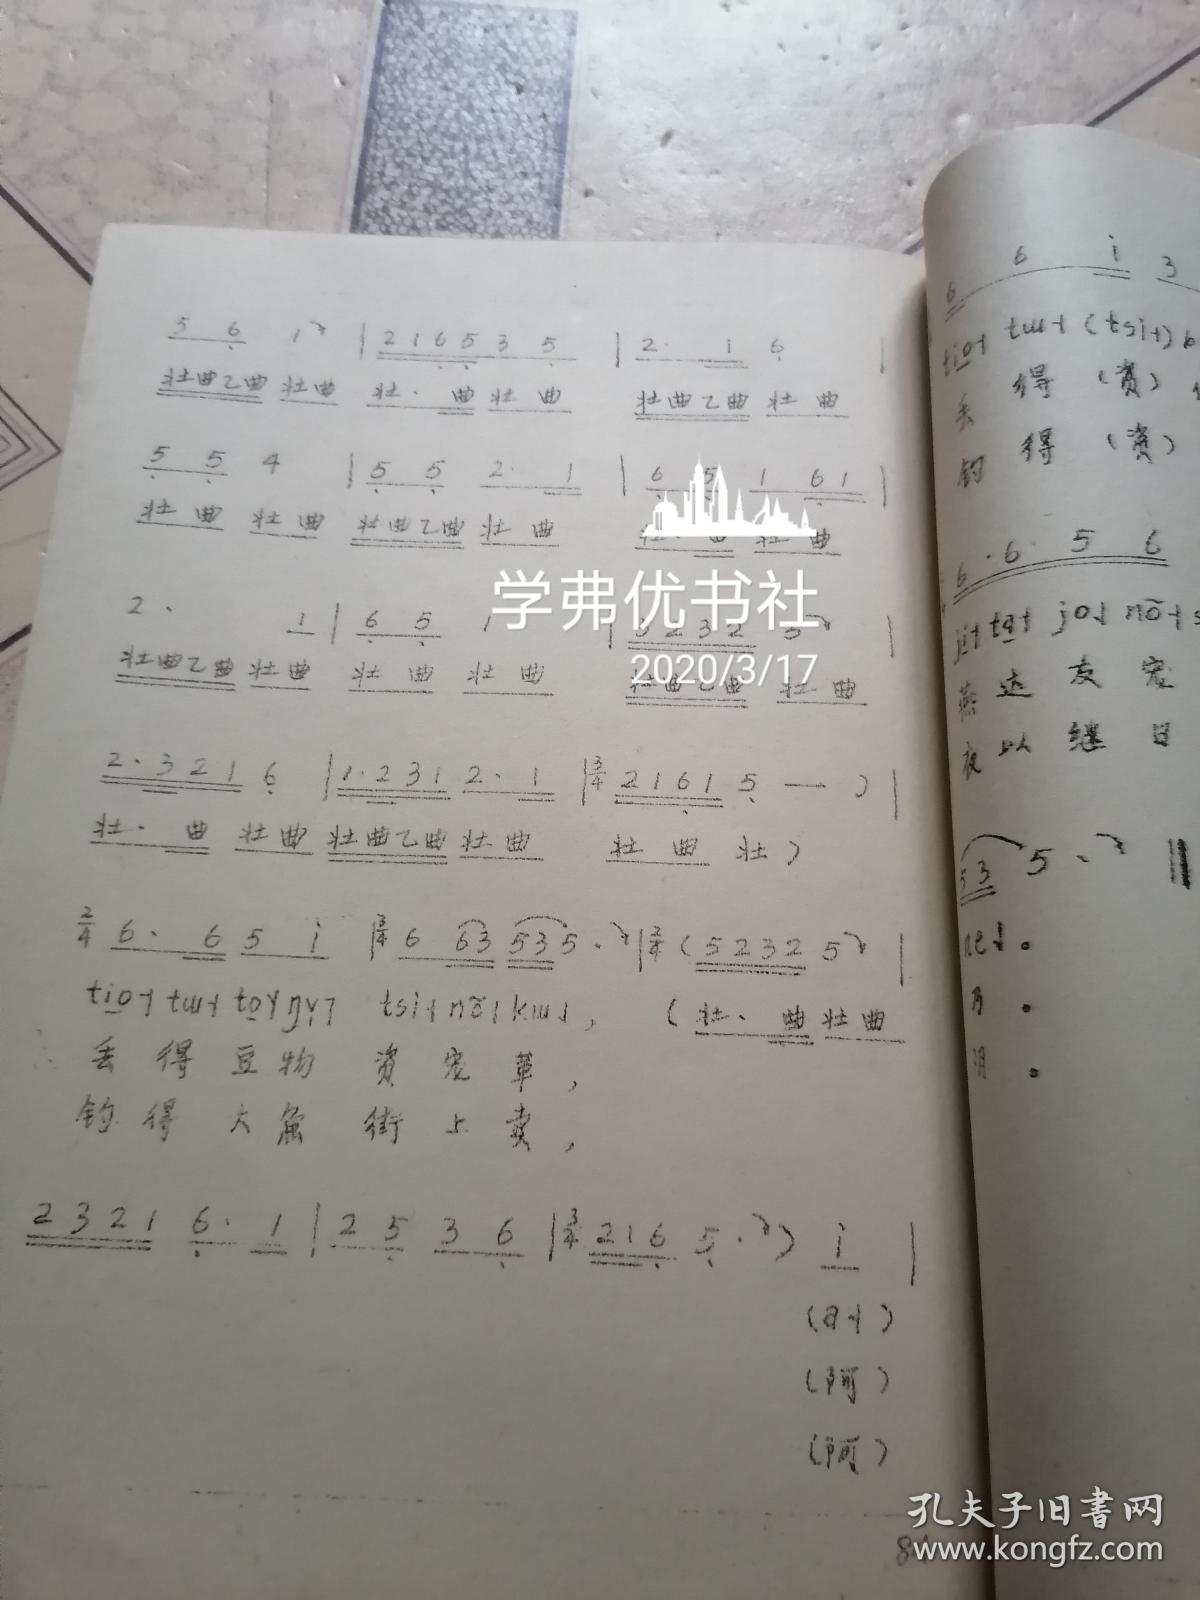 5 6 1 | 2 1 6 5 3 5 | 2· 1 6 |
壮曲乙曲 壮曲 壮· 曲 壮曲 壮曲乙曲 壮曲
5 5 4 | 5 5 2· 1 | 6 5 1 6 1 |
壮曲 壮曲 壮曲乙曲 壮曲 壮·曲 壮曲
2· 1 | 6 5 1 | 3 2 3 2 5 |
壮曲乙曲 壮曲 壮曲 壮曲 壮曲乙曲 壮曲
2·3 2 1 6 | 1·2 3 1 2· 1 | 3/4 2 1 6 1 5 — ) |
壮· 曲 壮曲 壮曲乙曲 壮曲 壮曲 壮)
2/4 6· 6 5 i | 3/4 6 63 535· | 2/4 (5 2 3 2 5 |
(壮· 曲 壮曲
丢 得 豆 物 资 宠 革,
钓 得 大 鱼 街 上 卖,
2 3 2 1 6· 1 | 2 5 3 6 | 3/4 2 1 6 5· ) i |
(阿)
(阿)
6 6 i 3
丢 得 (资)
钓 得 (资)
6·6· 5 6
燕 达 友 宠
夜 以 继 日
53 5·
学弗优书社
2020/3/17
孔夫子旧书网
www.kongfz.com